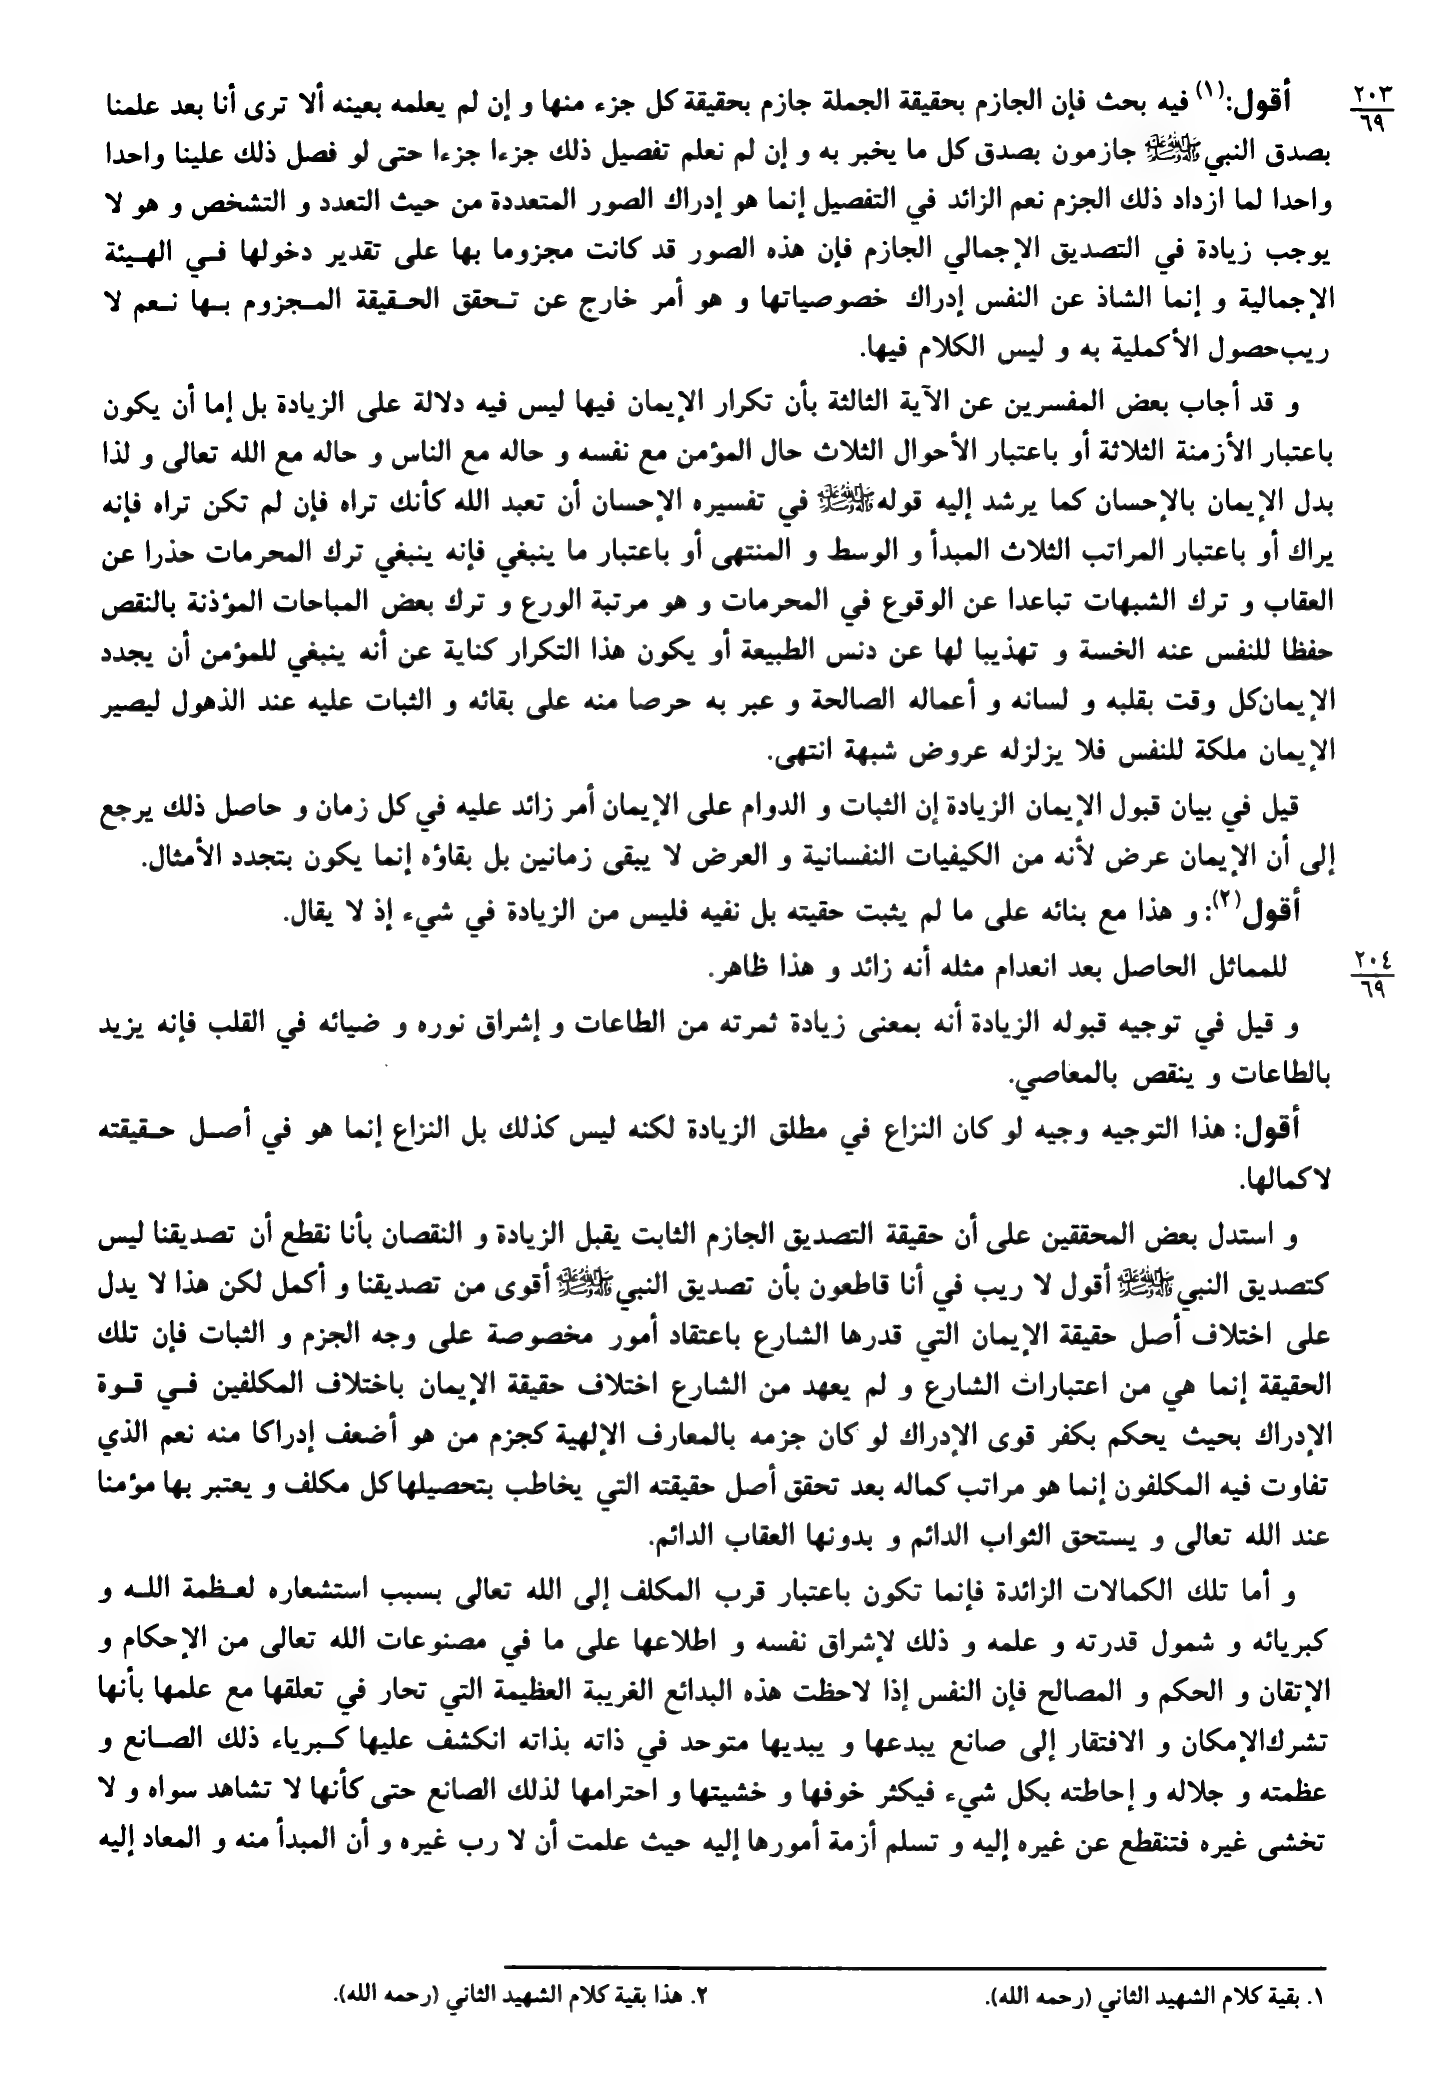 ٢٠٣
٦٩
أقول:(١) فيه بحث فإن الجازم بحقيقة الجملة جازم بحقيقة كل جزء منها و إن لم يعلمه بعينه ألا ترى أنا بعد علمنا
بصدق النبي ﷺ جازمون بصدق كل ما يخبر به و إن لم نعلم تفصيل ذلك جزءا جزءا حتى لو فصل ذلك علينا واحدا
واحدا لما ازداد ذلك الجزم نعم الزائد في التفصيل إنما هو إدراك الصور المتعددة من حيث التعدد و التشخص و هو لا
يوجب زيادة في التصديق الإجمالي الجازم فإن هذه الصور قد كانت مجزوما بها على تقدير دخولها فـي الهـيئة
الإجمالية و إنما الشاذ عن النفس إدراك خصوصياتها و هو أمر خارج عن تـحقق الحـقيقة المـجزوم بـها نـعم لا
ريب‌حصول الأكملية به و ليس الكلام فيها.
و قد أجاب بعض المفسرين عن الآية الثالثة بأن تكرار الإيمان فيها ليس فيه دلالة على الزيادة بل إما أن يكون
باعتبار الأزمنة الثلاثة أو باعتبار الأحوال الثلاث حال المؤمن مع نفسه و حاله مع الناس و حاله مع الله تعالى و لذا
بدل الإيمان بالإحسان كما يرشد إليه قوله ﷺ في تفسيره الإحسان أن تعبد الله كأنك تراه فإن لم تكن تراه فإنه
يراك أو باعتبار المراتب الثلاث المبدأ و الوسط و المنتهى أو باعتبار ما ينبغي فإنه ينبغي ترك المحرمات حذرا عن
العقاب و ترك الشبهات تباعدا عن الوقوع في المحرمات و هو مرتبة الورع و ترك بعض المباحات المؤذنة بالنقص
حفظا للنفس عنه الخسة و تهذيبا لها عن دنس الطبيعة أو يكون هذا التكرار كناية عن أنه ينبغي للمؤمن أن يجدد
الإيمان‌كل وقت بقلبه و لسانه و أعماله الصالحة و عبر به حرصا منه على بقائه و الثبات عليه عند الذهول ليصير
الإيمان ملكة للنفس فلا يزلزله عروض شبهة انتهى.
قيل في بيان قبول الإيمان الزيادة إن الثبات و الدوام على الإيمان أمر زائد عليه في كل زمان و حاصل ذلك يرجع
إلى أن الإيمان عرض لأنه من الكيفيات النفسانية و العرض لا يبقى زمانين بل بقاؤه إنما يكون بتجدد الأمثال.
أقول(٢): و هذا مع بنائه على ما لم يثبت حقيته بل نفيه فليس من الزيادة في شيء إذ لا يقال.
٢٠٤
٦٩
للمماثل الحاصل بعد انعدام مثله أنه زائد و هذا ظاهر.
و قيل في توجيه قبوله الزيادة أنه بمعنى زيادة ثمرته من الطاعات و إشراق نوره و ضيائه في القلب فإنه يزيد
بالطاعات و ينقص بالمعاصي.
أقول: هذا التوجيه وجيه لو كان النزاع في مطلق الزيادة لكنه ليس كذلك بل النزاع إنما هو في أصـل حـقيقته
لاكمالها.
و استدل بعض المحققين على أن حقيقة التصديق الجازم الثابت يقبل الزيادة و النقصان بأنا نقطع أن تصديقنا ليس
كتصديق النبي ﷺ أقول لا ريب في أنا قاطعون بأن تصديق النبي ﷺ أقوى من تصديقنا و أكمل لكن هذا لا يدل
على اختلاف أصل حقيقة الإيمان التي قدرها الشارع باعتقاد أمور مخصوصة على وجه الجزم و الثبات فإن تلك
الحقيقة إنما هي من اعتبارات الشارع و لم يعهد من الشارع اختلاف حقيقة الإيمان باختلاف المكلفين فـي قـوة
الإدراك بحيث يحكم بكفر قوى الإدراك لو كان جزمه بالمعارف الإلهية كجزم من هو أضعف إدراكا منه نعم الذي
تفاوت فيه المكلفون إنما هو مراتب كماله بعد تحقق أصل حقيقته التي يخاطب بتحصيلها كل مكلف و يعتبر بها مؤمنا
عند الله تعالى و يستحق الثواب الدائم و بدونها العقاب الدائم.
و أما تلك الكمالات الزائدة فإنما تكون باعتبار قرب المكلف إلى الله تعالى بسبب استشعاره لعـظمة اللـه و
كبريائه و شمول قدرته و علمه و ذلك لإشراق نفسه و اطلاعها على ما في مصنوعات الله تعالى من الإحكام و
الإتقان و الحكم و المصالح فإن النفس إذا لاحظت هذه البدائع الغريبة العظيمة التي تحار في تعلقها مع علمها بأنها
تشرك‌الإمكان و الافتقار إلى صانع يبدعها و يبديها متوحد في ذاته بذاته انكشف عليها كـبرياء ذلك الصـانع و
عظمته و جلاله و إحاطته بكل شيء فيكثر خوفها و خشيتها و احترامها لذلك الصانع حتى كأنها لا تشاهد سواه و لا
تخشى غيره فتنقطع عن غيره إليه و تسلم أزمة أمورها إليه حيث علمت أن لا رب غيره و أن المبدأ منه و المعاد إليه
١. بقية كلام الشهيد الثاني (رحمه الله).
٢. هذا بقية كلام الشهيد الثاني (رحمه الله).